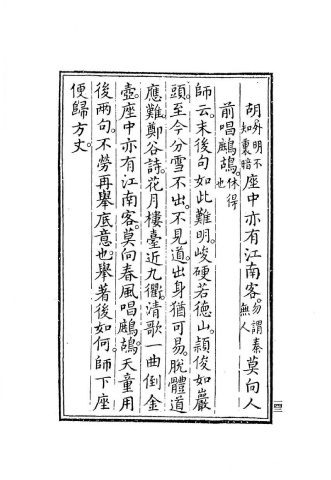 胡外明不知裏暗座中亦有江南客勿謂秦無人莫向人
前唱鷓鴣休得也
師云末後句如此難明峻硬若德山頴俊如巖
頭至今分雪不出不見道出身猶可易脫體道
應難鄭谷詩花月樓臺近九衢清歌一曲倒金
壺座中亦有江南客莫向春風唱鷓鴣天童用
後兩句不勞再舉底意也舉著後如何師下座
便歸方丈
四